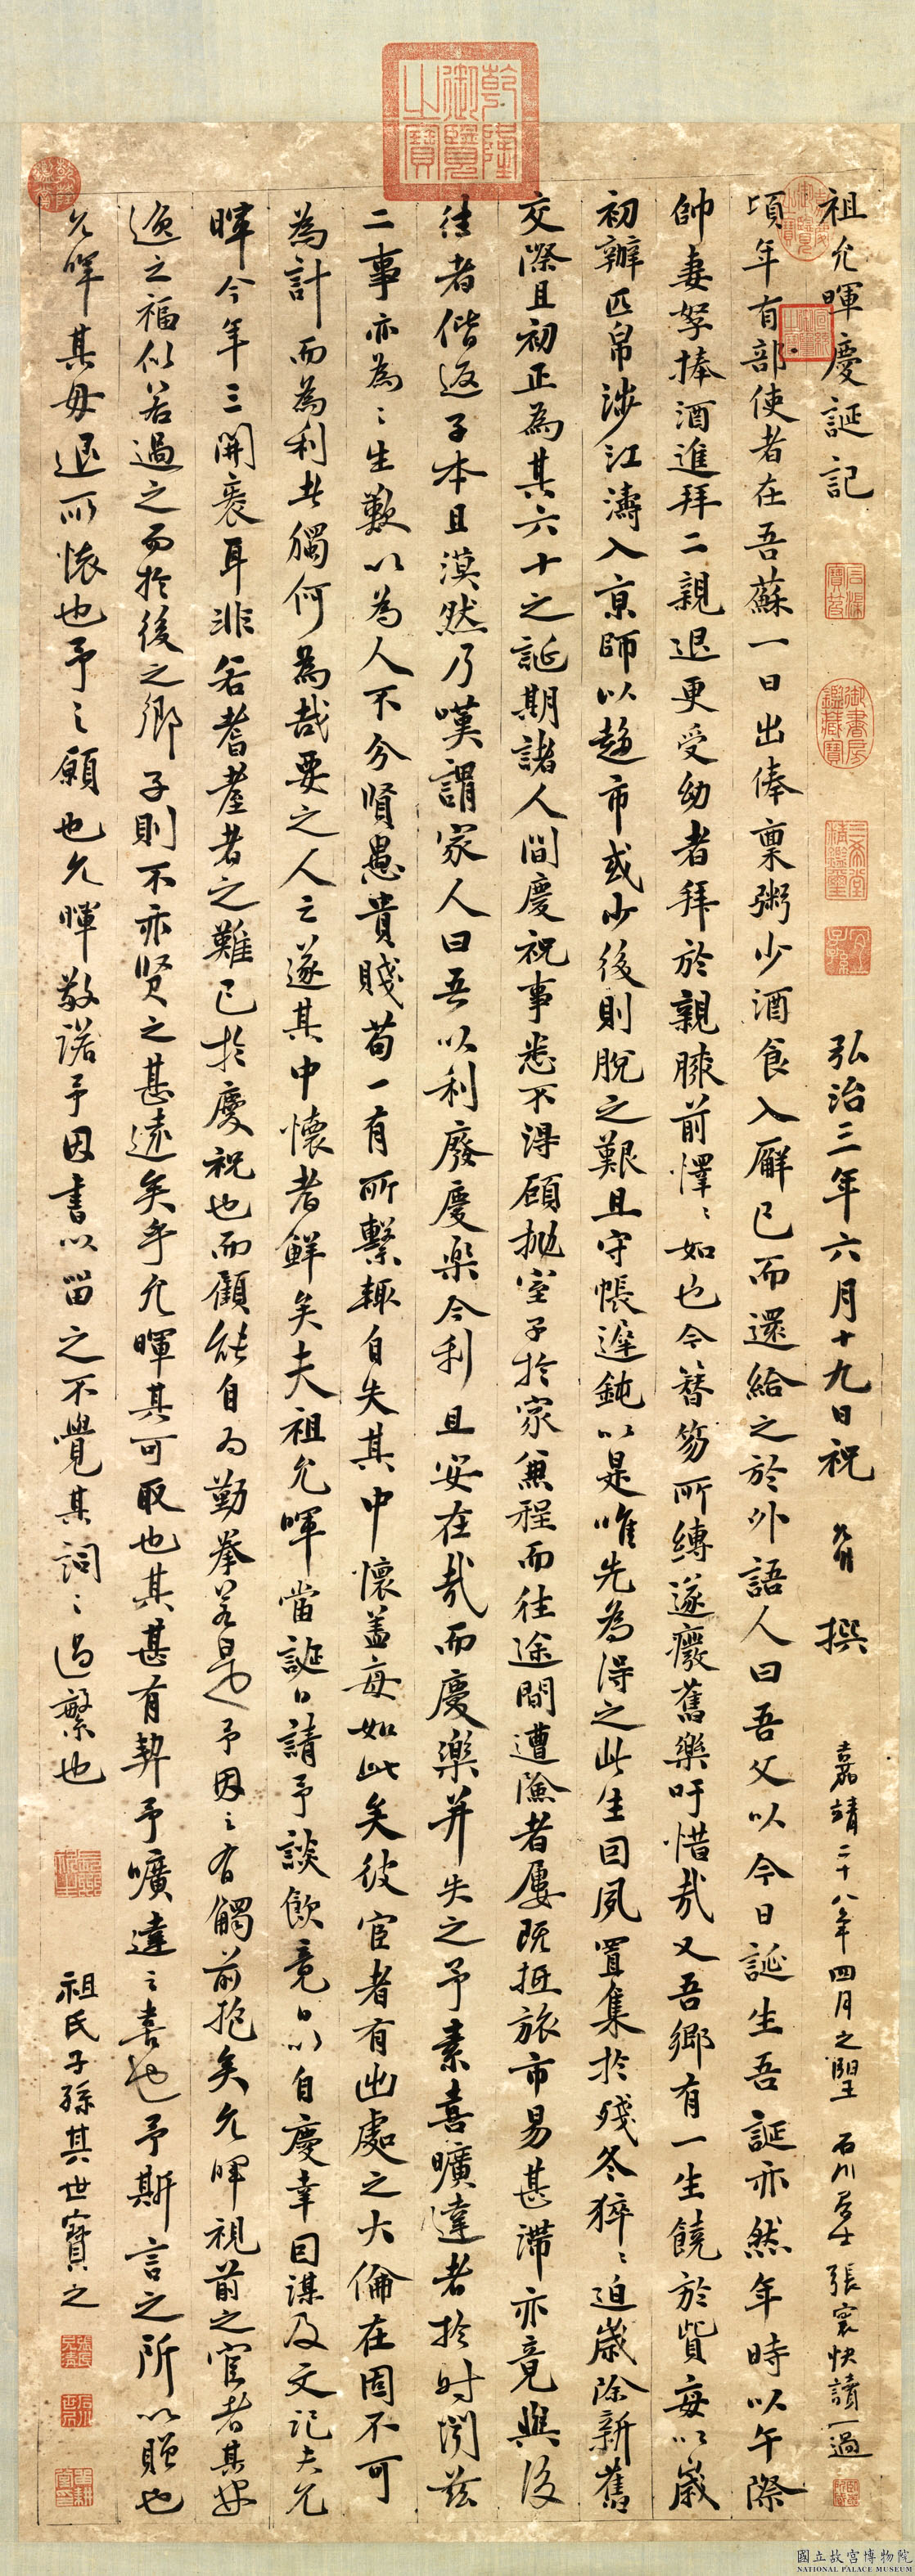 祖允暉慶誕記
弘治三年六月十九日祝 允明 撰
嘉靖二十八年四月之望 石川居士張寰快讀一過
頃年有部使者在吾蘇一日出俸稟粥少酒食入廨已而還給之於外語人曰吾父以今日誕生吾誕亦然年時以午際
帥妻孥捧酒進拜二親退更受幼者拜於親膝前懌〻如也今簪笏所縛遂癈舊樂吁惜哉又吾鄉有一生饒於貲每以歲
初辦匹帛涉江濤入京師以趨市或少後則脫之艱且守帳遲鈍以是唯先為得之此生曰夙置集於殘冬猝〻迫歲除新舊
交際且初正為其六十之誕期諸人間慶祝事悉不得顧拋室子於家兼程而往途間遭險者屢既抵旅市易甚滯亦竟與後
往者偕返子本且漠然乃嘆謂家人曰吾以利廢慶樂今利且安在哉而慶樂并失之予素喜曠達者於時閒茲
二事亦為〻生歎以為人不分賢愚貴賤苟一有所繫輒自失其中懷蓋每如此矣彼宦者有出處之大倫在固不可
為計而為利者獨何為哉要之人之遂其中懷者鮮矣夫祖允暉當誕日請予談飲竟日以自慶幸因謀及文記夫允
暉今年三開袠耳非若耆耋者之難已於慶祝也而顧能自為勤拳若是也予因之有觸前抱矣允暉視前之宦者其安
逸之福似若過之而於後之鄉子則不亦賢之甚遠矣乎允暉其可取也其甚有契予曠達之喜也予斯言之所以贈也
允暉其毋退所懷也予之願也允暉敬諾予因書以留之不覺其詞〻過繁也
祖氏子孫其世寶之
乾隆御覽之寶
石渠寶笈
御書房鑑藏寶
三希堂精鑑璽
宜子孫
國立故宮博物院
NATIONAL PALACE MUSEUM